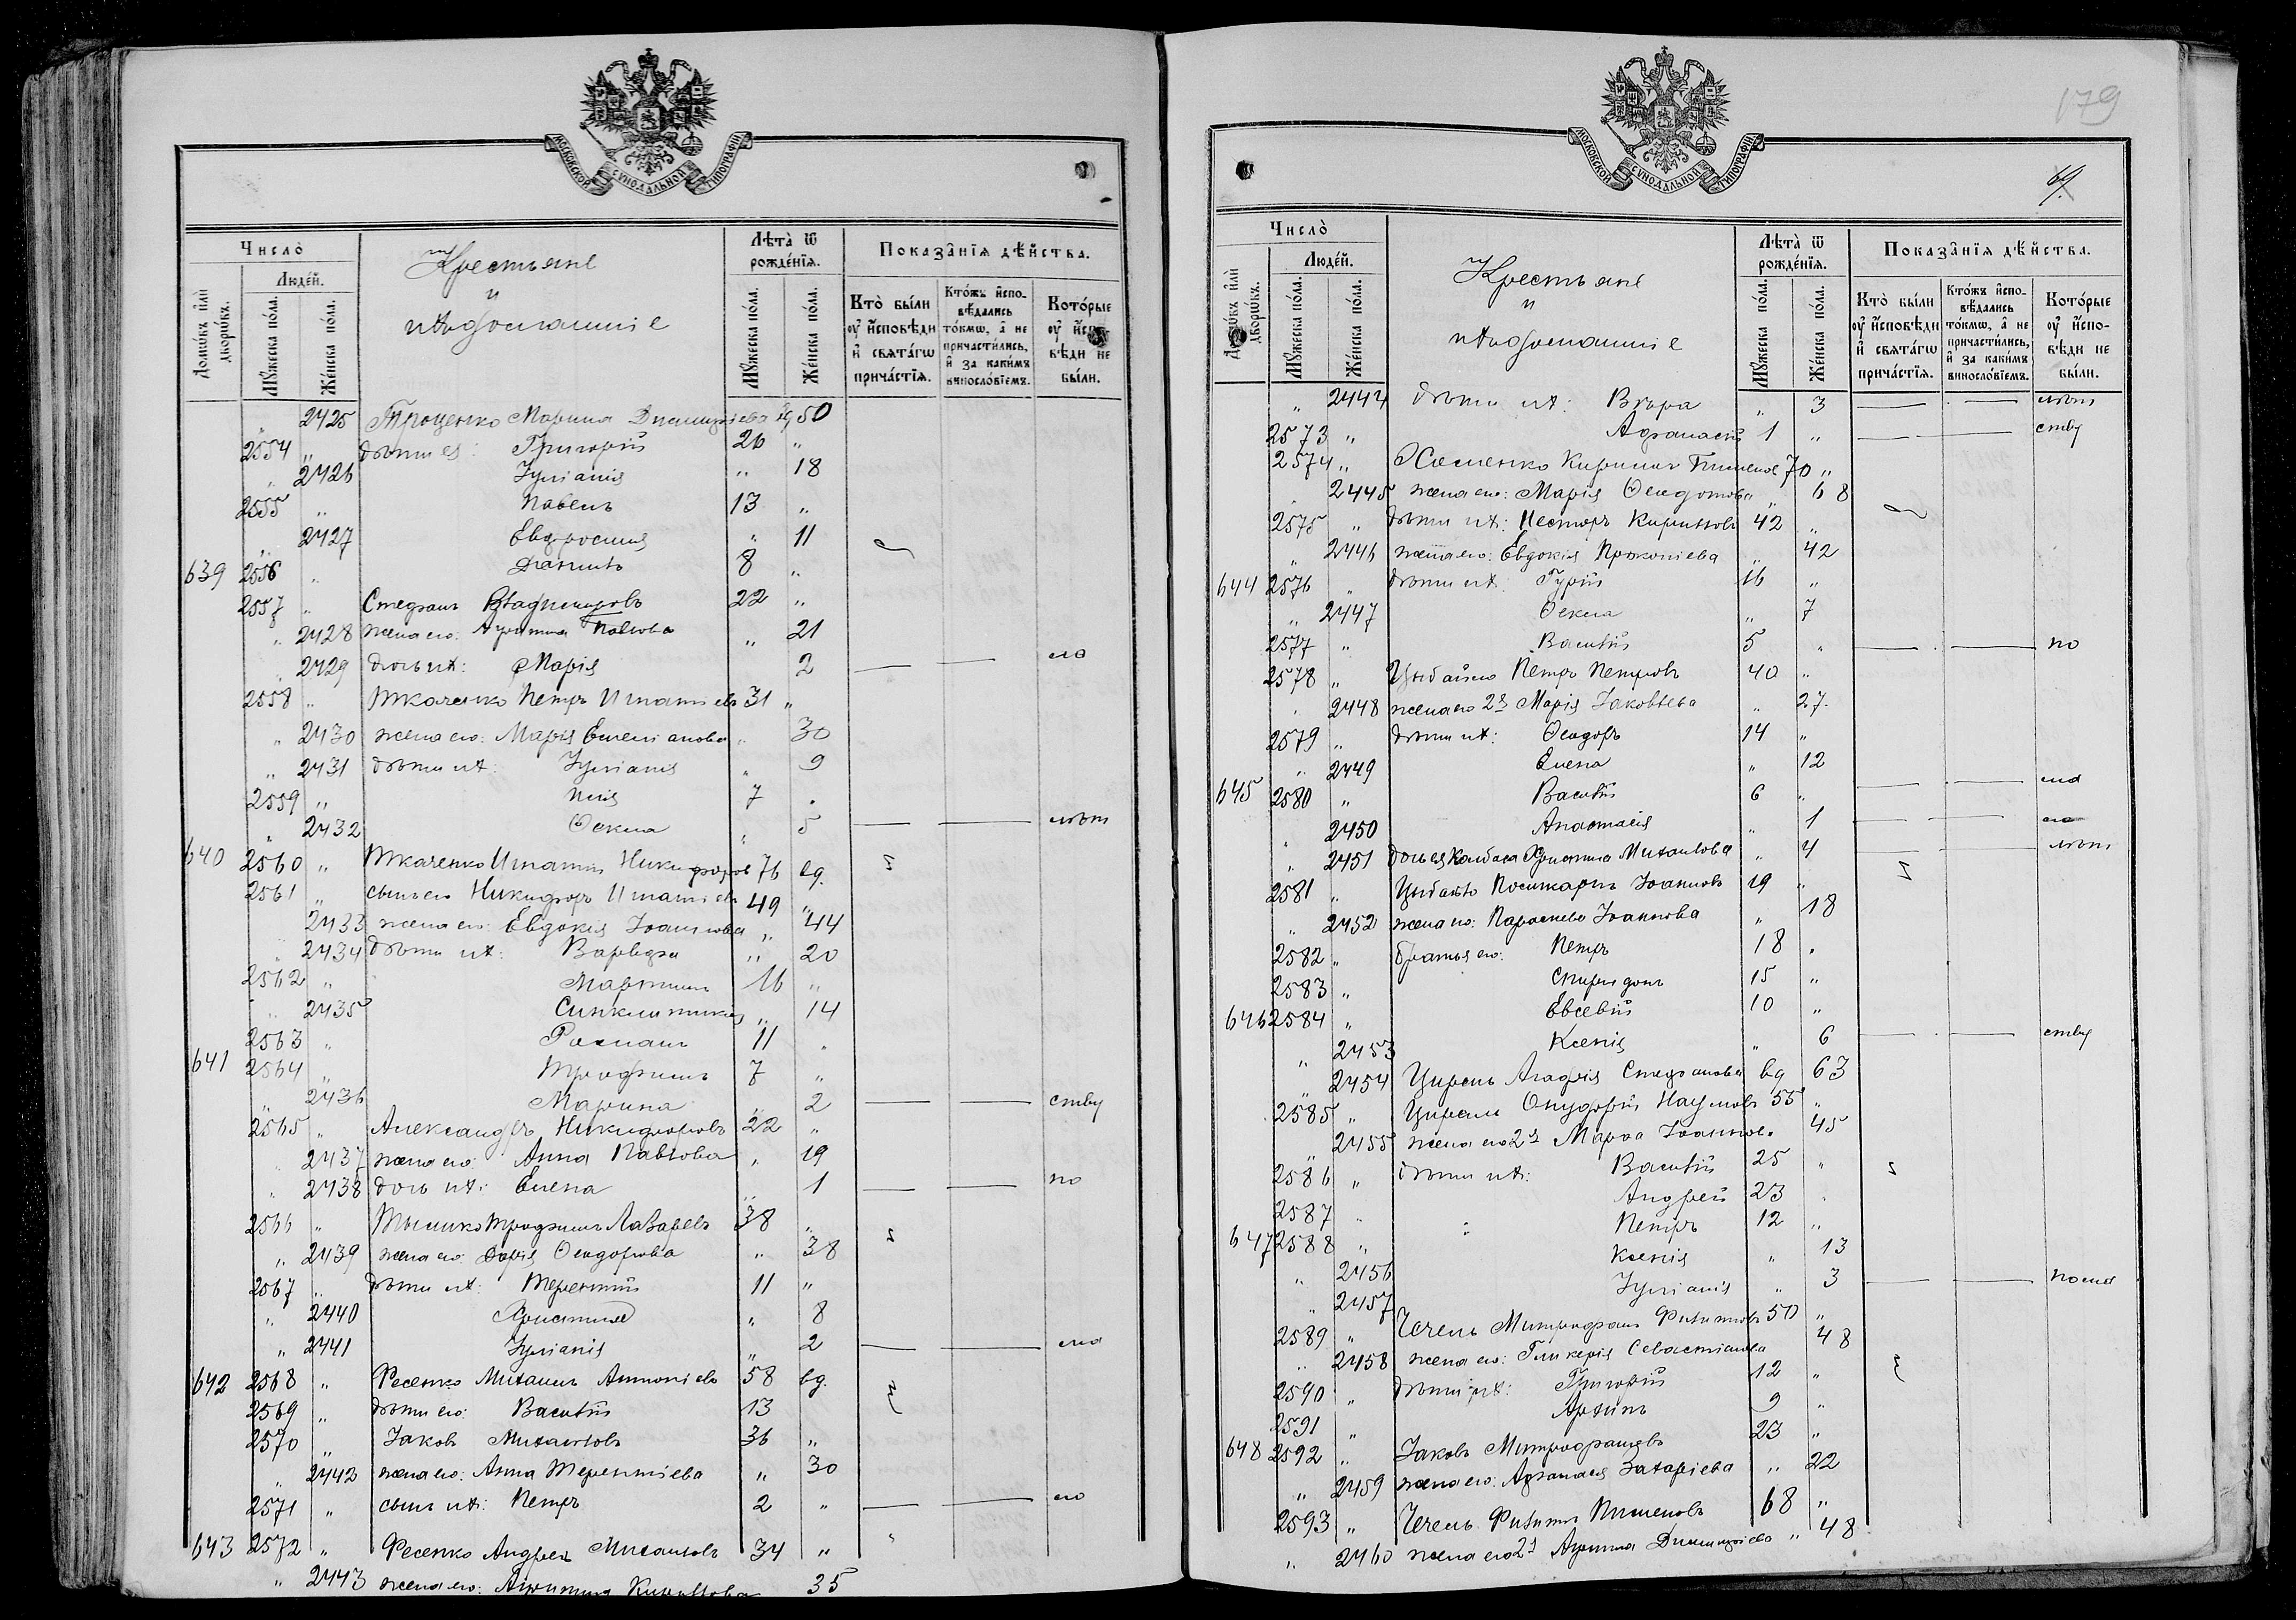 МОСКОВСКОЙ СѴНОДАЛЬНОЙ ТИПОГРАФІИ
Число̀
Людéй.
Домѡ́въ и҆лѝ дворѡ́въ.
Мꙋ́жеска по́ла.
Же́нска по́ла.
Крестьяне
и
ихъ домашніе
Лѣта̀ ѿ рожде́нїѧ.
Мꙋ́жеска по́ла.
Же́нска по́ла.
Показа̂нїѧ дѣ́йства.
Кто̀ бы́ли оу҆ и҆сповѣ́ди и҆ свѧта́гѡ прича́стїѧ.
Кто́жъ и҆спо-вѣ́дались то́кмѡ, а҆ не причасти́лись, и҆ за каки́мъ винослові́емъ.
Кото́рые оу҆ и҆спо-вѣ́ди не бы́ли.
" 2425 Троценко Марина Димитріева вд 50
2554 " дѣти ея: Григорій 26 "
" 2426 Іуліанія " 18
2555 " Павелъ 13 "
" 2427 Евфросинія " 11
639 2556 " Даніилъ 8 "
2557 " Стефанъ Владиміровъ 22 "
" 2428 жена его: Акилина Павлова " 21
" 2429 дочь их: Марія 2 — — ма
2558 " Ткаченко Петръ Игнатіевъ 31 "
" 2430 жена его: Марія Емеліанова " 30
" 2431 дѣти их: Іуліанія " 9
2559 " Илія 7 "
" 2432 Ѳекла " 5 — — лѣт
640 2560 " Ткаченко Игнатій Никифоровъ 76 вд.
2561 " сынъ его Никифоръ Игнатіевъ 49 "
" 2433 жена его: Евдокія Іоаннова " 44
" 2434 дѣти их: Варвара " 20
2562 " Мартинъ 16 "
" 2435 Синклитикія " 14
2563 " Романъ 11 "
641 2564 " Трофимъ 7 "
" 2436 Марина 2 — — ству
2565 " Александръ Никифоровъ 22 "
" 2437 жена его: Анна Павлова " 19
" 2438 дочь их: Елена " 1 — — по
2566 " Тымко Трофимъ Лазаревъ 38 "
" 2439 жена его: Дарія Ѳеодорова " 38
2567 " дѣти их: Терентій 11 "
" 2440 Христина " 8
" 2441 Іуліанія " 2 — — ма
642 2568 " Фесенко Михаилъ Антоніевъ 58 вд.
2569 " дѣти его: Василій 13
2570 " Іаковъ Михаиловъ 36 "
" 2442 жена его: Анна Терентіева " 30
2571 " сынъ их: Петръ 2 " — — ло
643 2572 " Фесенко Андрей Михаиловъ 34 "
" 2443 жена его: Акилина Кириллова 35
179
МОСКОВСКОЙ СѴНОДАЛЬНОЙ ТИПОГРАФІИ
Число̀
Людéй.
Домѡ́въ и҆лѝ дворѡ́въ.
Мꙋ́жеска по́ла.
Же́нска по́ла.
Крестьяне
и
ихъ домашніе
Лѣта̀ ѿ рожде́нїѧ.
Мꙋ́жеска по́ла.
Же́нска по́ла.
Показа̂нїѧ дѣ́йства.
Кто̀ бы́ли оу҆ и҆сповѣ́ди и҆ свѧта́гѡ прича́стїѧ.
Кто́жъ и҆спо-вѣ́дались то́кмѡ, а҆ не причасти́лись, и҆ за каки́мъ винослові́емъ.
Кото́рые оу҆ и҆спо-вѣ́ди не бы́ли.
" 2444 дѣти их: Вѣра " 3 — — лѣт
2573 " Афанасій 1 " — — ству
2574 " Хоменко Кириллъ 70 "
" 2445 жена его: Марія Ѳеодотова " 68
2575 " дѣти их: Несторъ Кирилловъ 42 "
" 2446 жена его: Евдокія Прокопіева " 42
644 2576 " дѣти их: Гурій 16 "
" 2447 Ѳекла " 7
2577 " Василій 5 " — — по
2578 " Цыбайло Петръ Петровъ 40 "
" 2448 жена его 2я Марія Іаковлева " 27.
2579 " дѣти их: Ѳеодоръ 14 "
" 2449 Елена " 12
645 2580 " Василій 6 " — — ма
" 2450 Анастасія " 1 — — ло
" 2451 дочь ея Христина Михаилова " 4 — — лѣт
2581 " Поликарпъ Іоанновъ 19 "
" 2452 жена его: Параскева Іоаннова " 18
2582 " братья его: Петръ 18 "
2583 " Спиридонъ 15 "
646 2584 " Евсевій 10 "
" 2453 Ксенія " 6 — — ству
" 2454 Цирень Агафія Стефанова вд 63
2585 " Онуфрій Наумовъ 55 "
" 2455 жена его 2я Марѳа Іоаннов. 45
2586 " дѣти их: Василій 25 "
2587 " Андрей 23 "
647 2588 " Петръ 12 "
" 2456 Ксенія " 13
" 2457 Іуліанія " 3 — — по ма
2589 " Чечель Митрофанъ Филипповъ 50 "
" 2458 жена его: Гликерія Севастіанова 48
2590 " дѣти их: Григорій 12 "
2591 " Архипъ 9 "
648 2592 " Іаковъ Митрофановъ 23 "
" 2459 жена его: Афанасія Захаріева " 22
2593 " Чечель Филиппъ Пименовъ 68 "
" 2460 жена его 2я Акилина Димитріева " 48